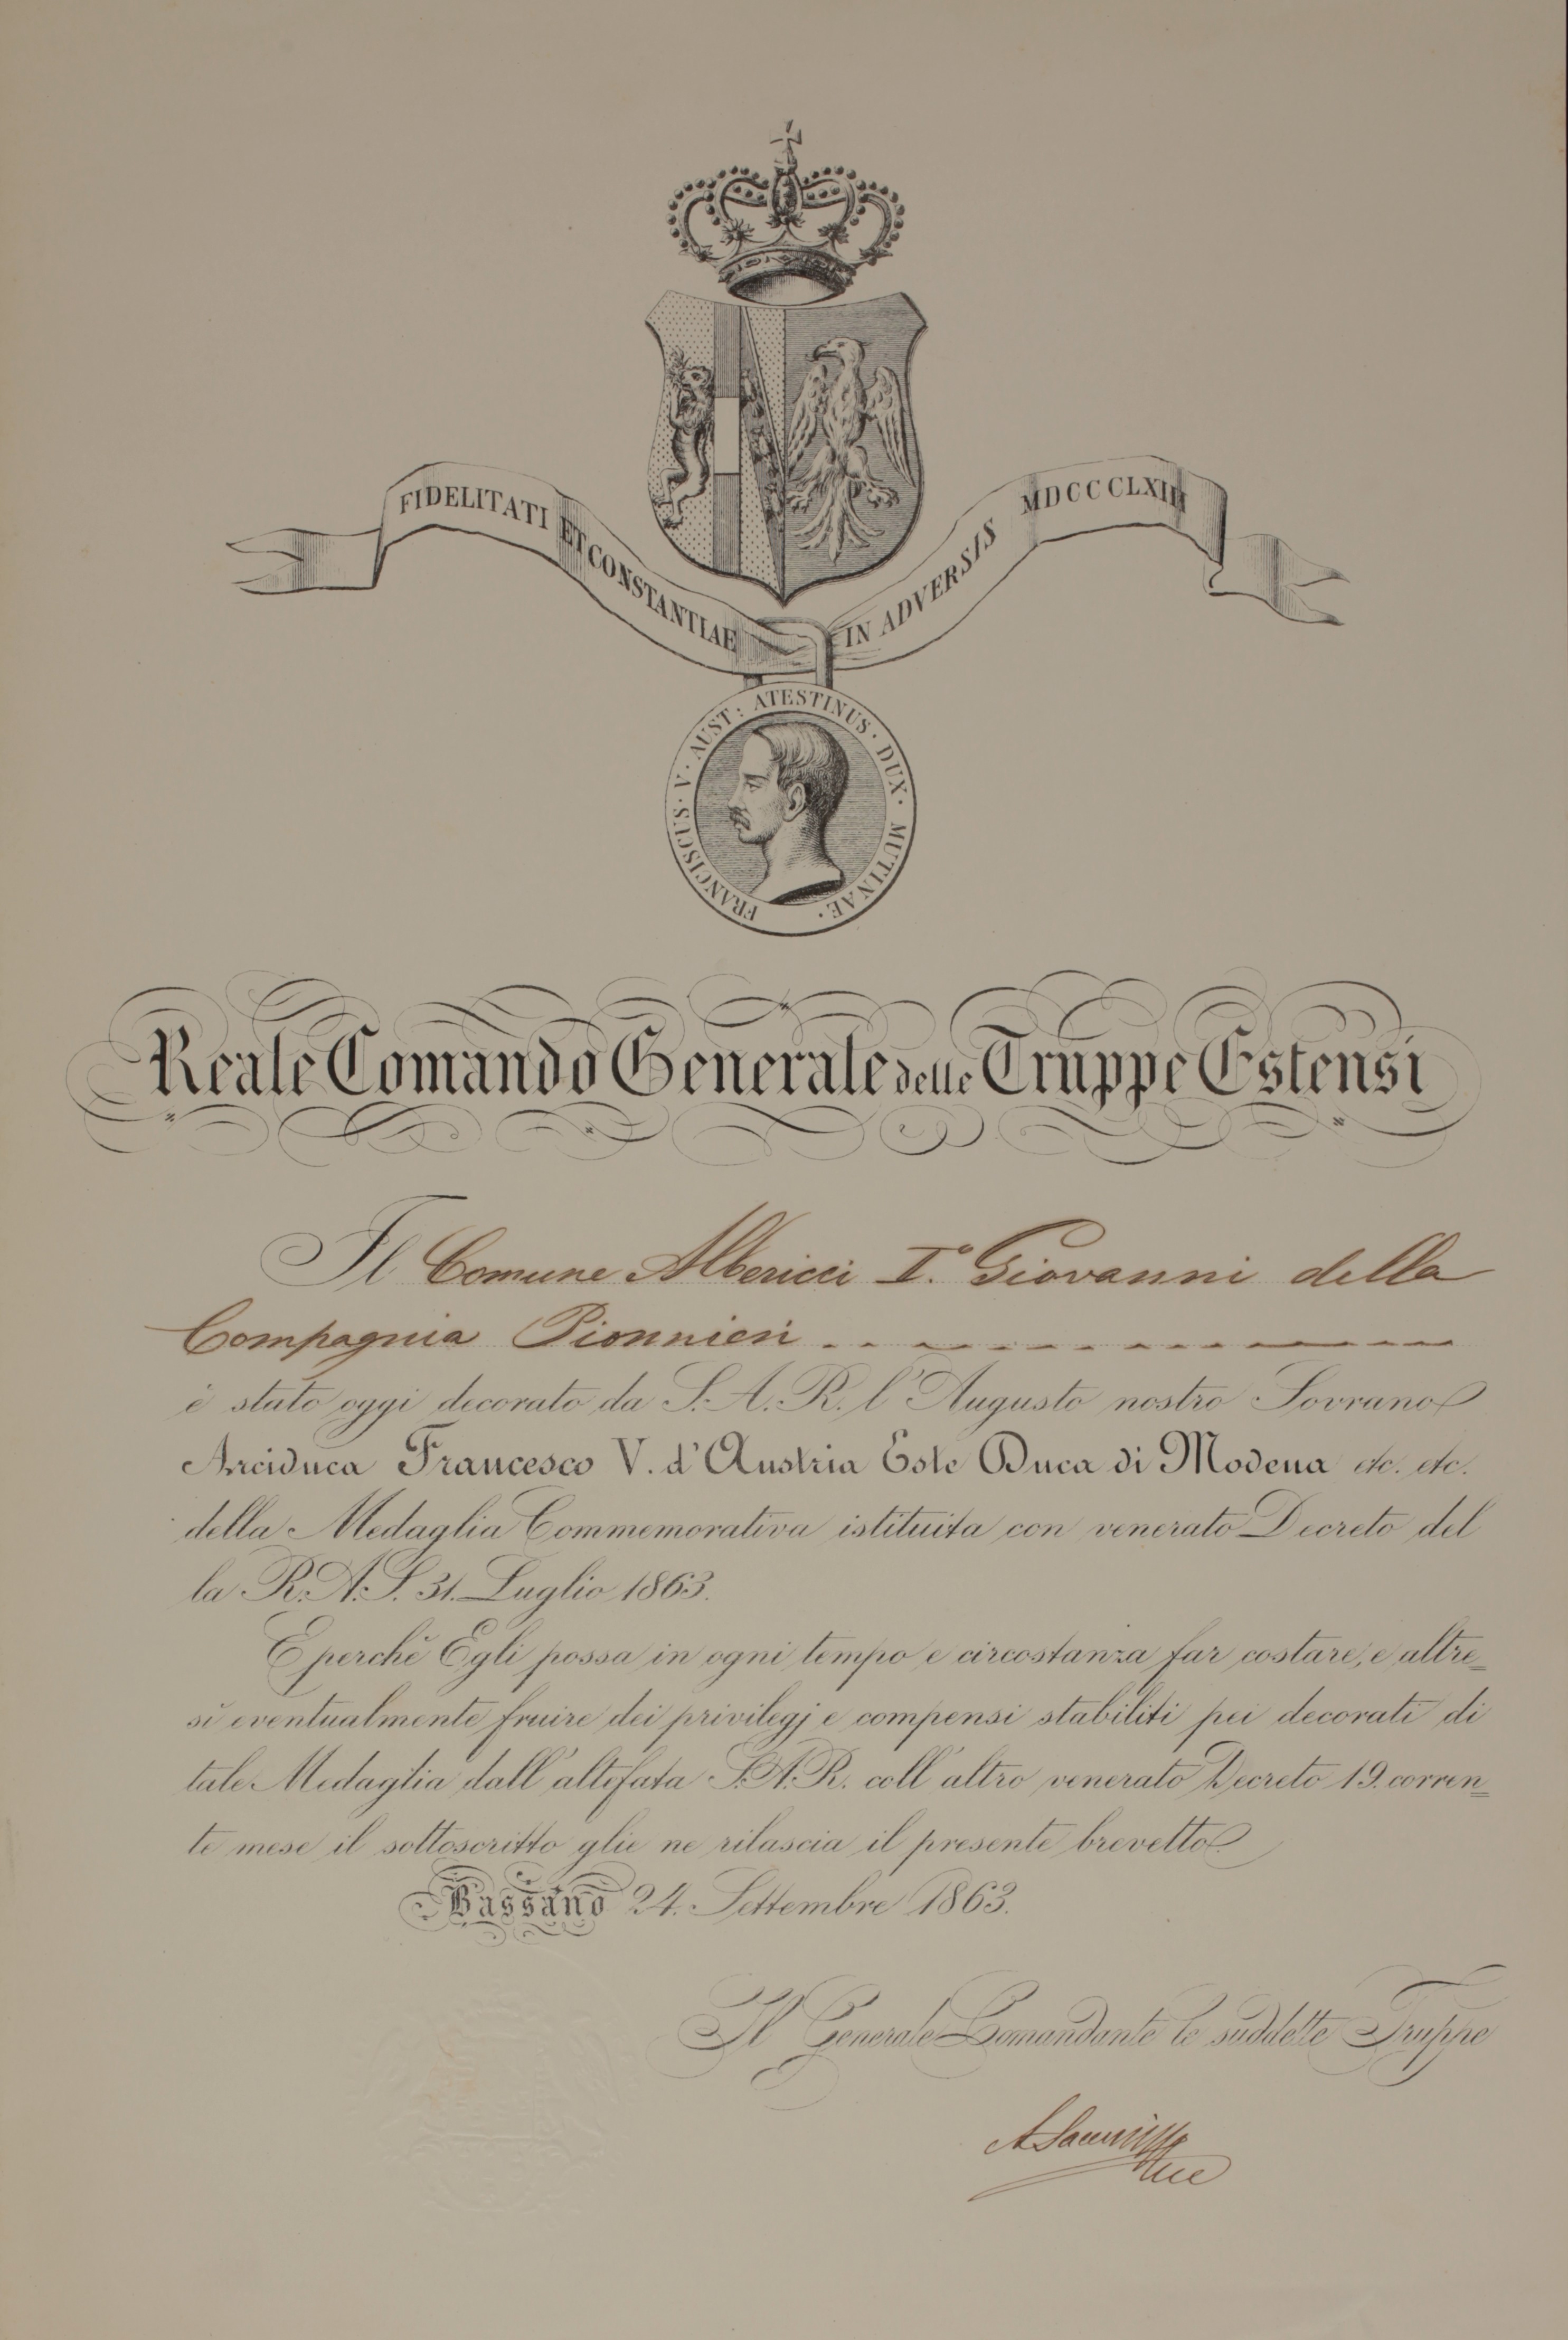 FIDELITATI ET CONSTANTIAE IN ADVERSIS MDCCCLXIII
FRANCISCUS · V · AUST: ATESTINUS · DUX · MUTINAE ·
Reale Comando Generale delle Truppe Estensi
Il Comune Albericci I.° Giovanni della
Compagnia Pionnieri
è stato oggi decorato da S.A.R. l'Augusto nostro Sovrano
Arciduca Francesco V. d'Austria Este Duca di Modena etc. etc.
della Medaglia Commemorativa istituita con venerato Decreto del
la R.A.S. 31. Luglio 1863.
E perchè Egli possa in ogni tempo e circostanza far costare, e altre=
sì eventualmente fruire dei privilegj e compensi stabiliti pei decorati di
tale Medaglia dall'altefata S.A.R. coll'altro venerato Decreto 19. corren=
te mese il sottoscritto glie ne rilascia il presente brevetto
Bassano 24. Settembre 1863.
Il Generale Comandante le suddette Truppe